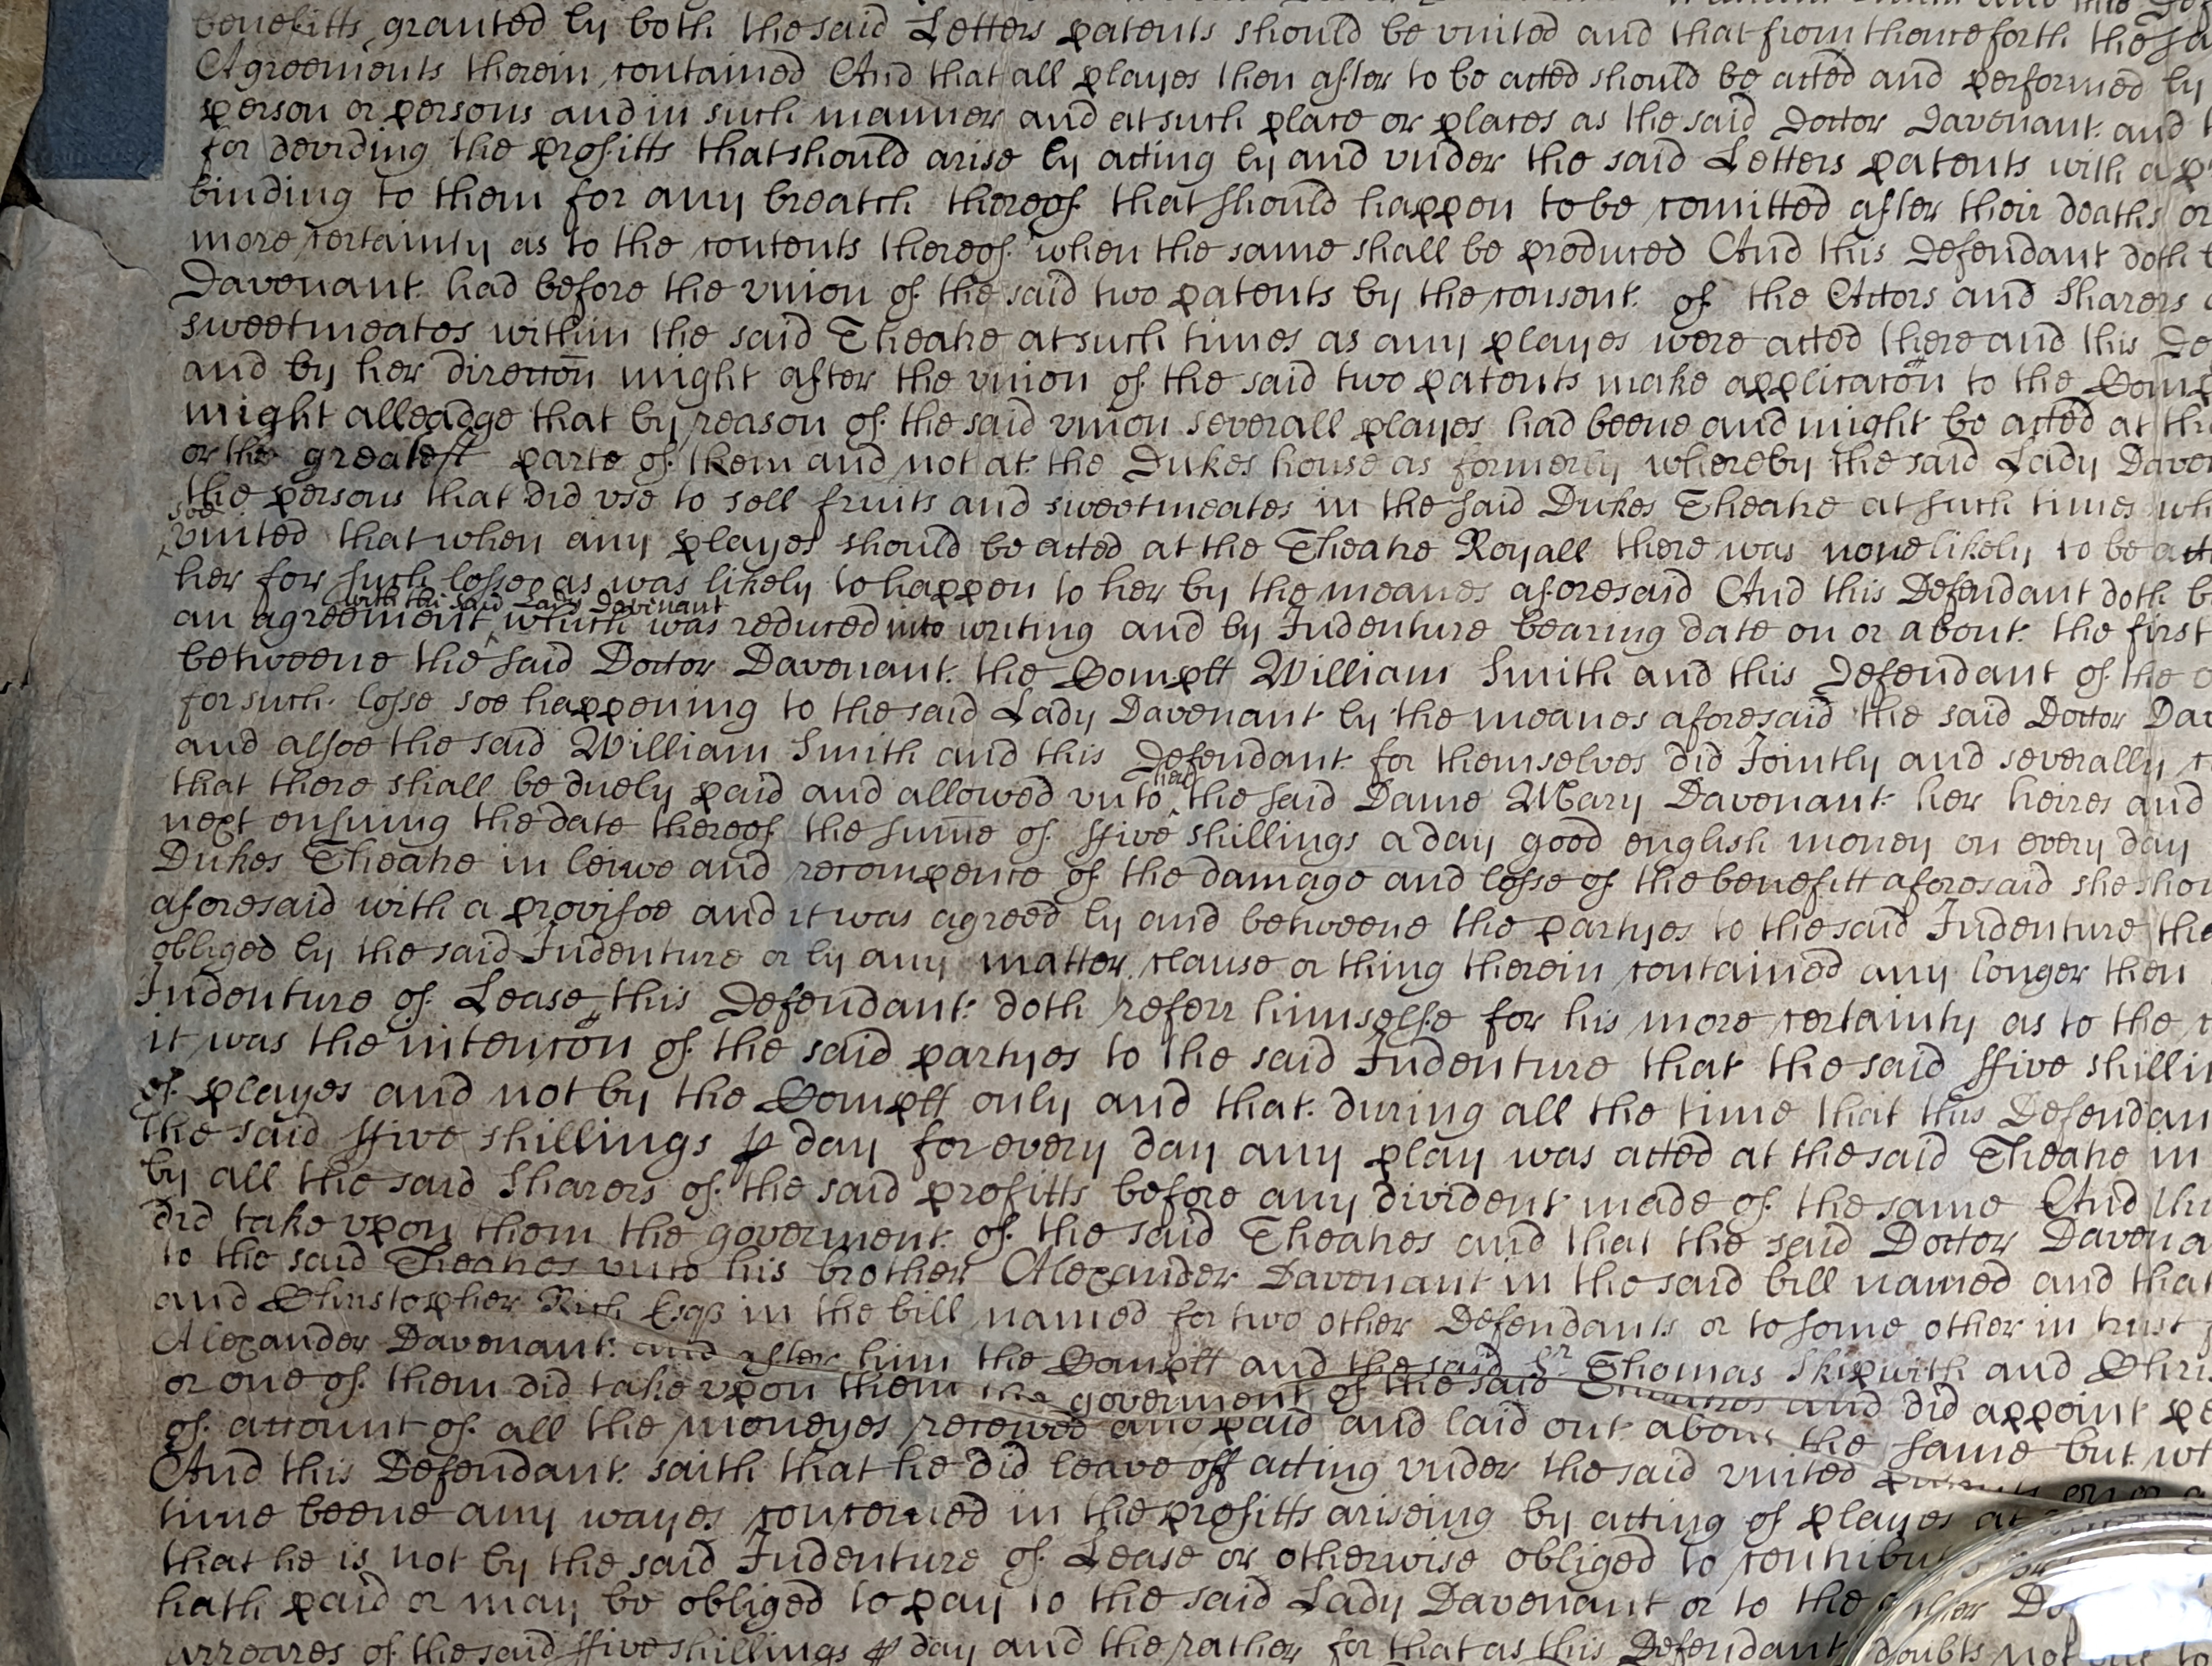 benefitts granted by both the said Letters patents should be vnited and that from thenceforth the sa
Agreements therein contained And that all playes then after to be acted should be acted and performed by
person or persons and in such manner and at such place or places as the said Doctor Davenant and
for deviding the profitts that should arise by acting by and vnder the said Letters patents with a p
binding to them for any breatch thereof that should happen to be comitted after their deaths or
more certainty as to the contents thereof when the same shall be produced And this Defendant doth
Davenant had before the vnion of the said two patents by the consent of the Actors and Sharers
sweetmeates within the said Theatre at such times as any playes were acted there and this De
and by her direccon might after the vnion of the said two patents make applicacon to the Comp
might alleadge that by reason of the said vnion severall playes had beene and might be acted at th
or the greatest parte of them and not at the Dukes house as formerly whereby the said Lady Daven
the persons that did vse to sell fruits and sweetmeates in the said Dukes Theatre at such times wh
soe
vnited that when any playes should be acted at the Theatre Royall there was none likely to be act
her for such losse as was likely to happen to her by the meanes aforesaid And this Defendant doth b
with the said Lady Davenant
an agreement which was reduced into writing and by Indenture bearing date on or about the first
betweene the said Doctor Davenant the Complt William Smith and this Defendant of the
for such losse soe happening to the said Lady Davenant by the meanes aforesaid the said Doctor Dav
and alsoe the said William Smith and this Defendant for themselves did Jointly and severally
that there shall be duely paid and allowed vnto her the said Dame Mary Davenant her heires and
next ensuing the date thereof the sume of ffive shillings a day good english money on every day
Dukes Theatre in leiwe and recompence of the damage and losse of the benefitt aforesaid she shou
aforesaid with a provisoe and it was agreed by and betweene the partyes to the said Indenture the
obliged by the said Indenture or by any matter clause or thing therein contained any longer then
Indenture of Lease this Defendant doth referr himselfe for his more certainty as to the
it was the intencon of the said partyes to the said Indenture that the said ffive shilli
of playes and not by the Complt only and that during all the time that this Defendan
the said ffive shillings p day for every day any play was acted at the said Theatre in
by all the said Sharers of the said profitts before any divident made of the same And th
did take vpon them the goverment of the said Theatres and that the said Doctor Davena
to the said Theatres vnto his brother Alexander Davenant in the said bill named and that
and Christopher Rich Esqs in the bill named for two other Defendants or to some other in trust
Alexander Davenant and after him the Complt and the said Sr Thomas Skipwith and Chri
or one of them did take vpon them the goverment of the said Theatres and did appoint pe
of account of all the moneyes received and paid and laid out about the same but w
And this Defendant saith that he did leave off acting vnder the said vnited
time beene any wayes concerned in the profitts ariseing by acting of playes at
that he is not by the said Indenture of Lease or otherwise obliged to contribut
hath paid or may be obliged to pay to the said Lady Davenant or to the other De
arreares of the said ffive shillings p day and the rather for that as this Defendant doubts not